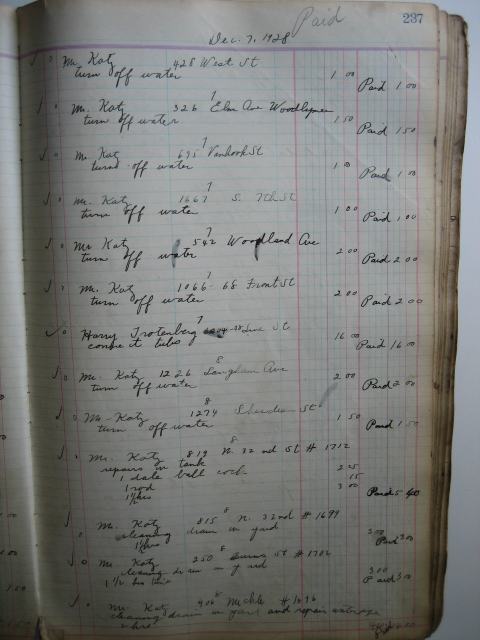 Paid
237
Dec. 7, 1928
Mr. Katz 428 West St
turn off water 1 00 Paid 1 00
7
Mr. Katz 326 Elm Ave Woodlynne
turn off water 1 50 Paid 1 50
7
Mr. Katz 695 Vanhook St
turn off water 1 00 Paid 1 00
7
Mr. Katz 1667 S. 7th St
turn off water 1 00 Paid 1 00
7
Mr Katz 542 Woodland Ave
turn off water 2 00 Paid 2 00
7
Mr. Katz 1066-68 Front St
turn off water 2 00 Paid 2 00
7
Harry Trotenberg Line St
connect tubs 16 00 Paid 16 00
8
Mr. Katz 1226 Langham Ave
turn off water 2 00 Paid 2 00
8
Mr. Katz 1274 Sheridan St
turn off water 1 50 Paid 1 50
8
Mr. Katz 819 N. 32nd St # 1712
repairs in tank
1 ball cock 2 25
1 rod 15
1½ hrs 3 00 Paid 5 40
8
Mr. Katz 815 N. 32nd # 1699
cleaning drain in yard
1½ hrs 3 00 Paid 3 00
8
Mr. Katz 250 St # 1702
cleaning drain in yard
1½ hrs 3 00 Paid 3 00
Mr. Katz 906 Mechle # 1696
cleaning drain in yard and repair
hrs